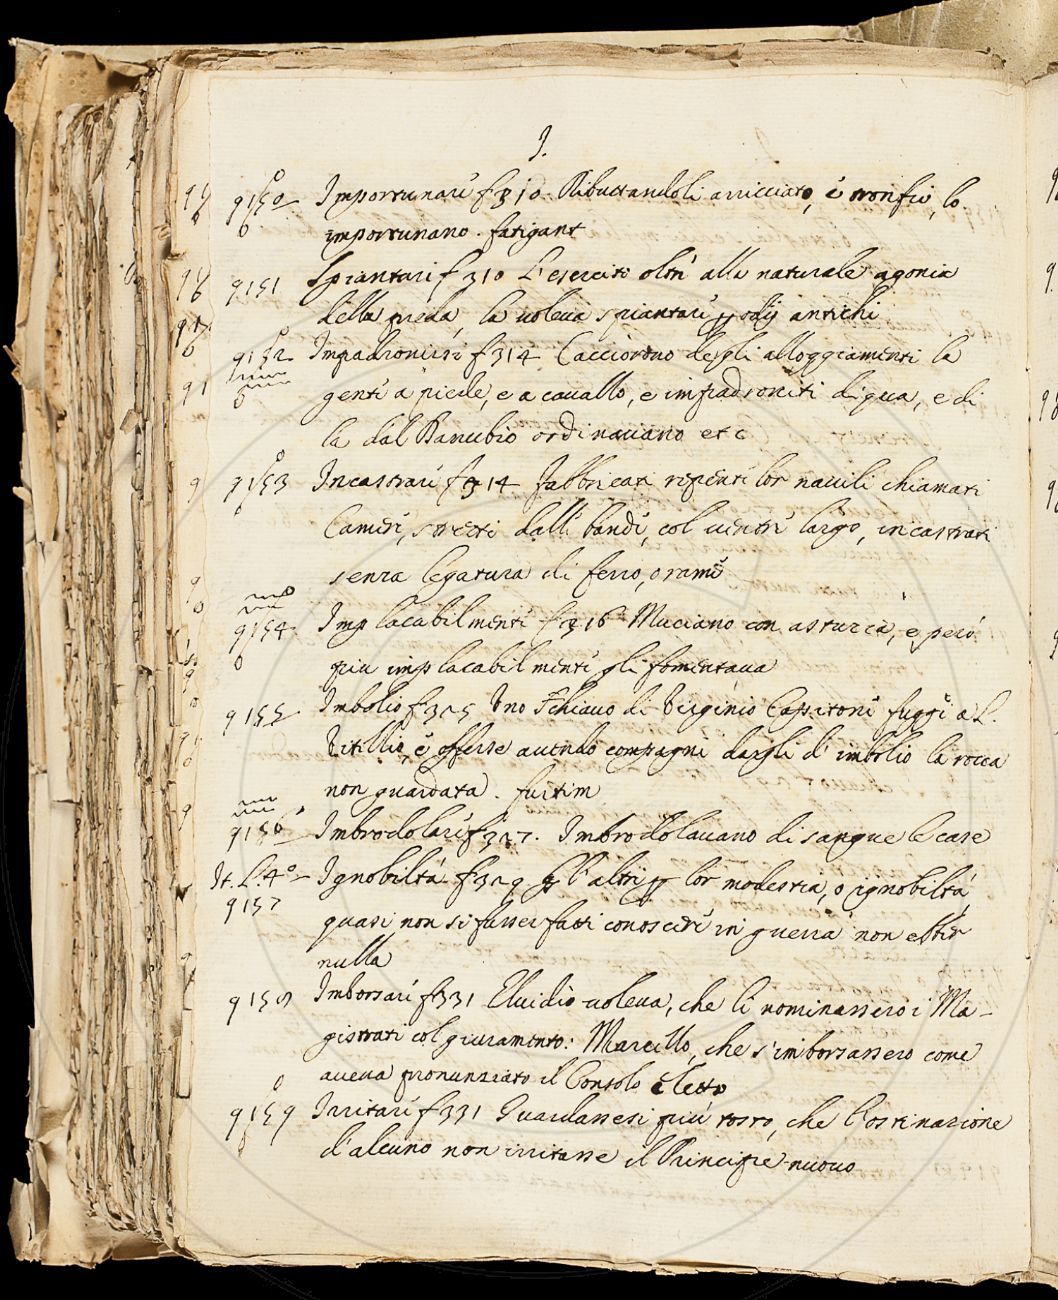 J.
9150 Importunari f 310. Ributtandoli arricciato, e tronfio, lo
importunano. fatigant
9151 Spiantari f 310 L'esercito oltri alla naturale agonia
della preda, la voleva spiantari p odij antichi
9152 Impadronirsi f 314 Cacciorono degli alloggiamenti le
genti a piede, e a cavallo, e impadroniti di qua, e di
la dal Danubio ordinavano etc
9153 Incastrari f 314 Fabbricati repenti lor navili chiamati
Cameri, stretti dalli bandi, col ventri largo, incastrati
senza legatura di ferro, o rame
9154 Implacabilmenti f 316 Muciano con asturia, e però
piu implacabilmenti gli fomentava
9155 Imbolio f 325 Uno schiavo di Verginio Capitoni fuggi a L.
Vitellio, e offerse avendo compagni dargli d'imbolio la rocca
non guardata. furtim
9156 Imbrodolari f 327. Imbrodolavano di sangue le case
It. L. 4°
9157 Ignobiltà f 329 Gl'altri p lor modestia, o ignobiltà,
quasi non si fusser fatti conosceri in guerra non esser
nulla
9158 Imborsari f 331 Elvidio voleva, che li nominassero i Ma-
gistrati col giuramento: Marcello, che s'imborsassero come
aveva pronunziato il Consolo eletto
9159 Irritari f 331 Guardassesi più tosto, che l'ostinazione
d'alcuno non irritasse il Principe nuovo